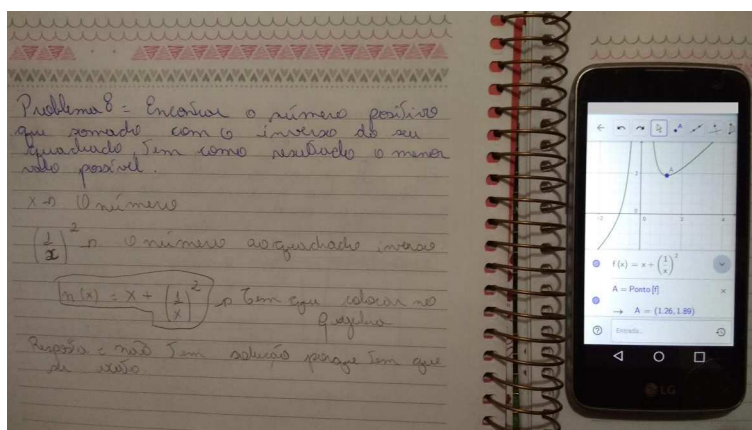 Problema 8 = Encontrar o número positivo
que somado com o inverso do seu
quadrado, Tem como resultado o menor
possível.
x → O número
(1/x)² → O número ao quadrado inverso
n(x) = x + (1/x)² → Tem que colocar no
Resposta = não Tem solução porque Tem que
f(x) = x + (1/x)²
A = Ponto[f]
→ A = (1.26, 1.89)
Entrada...
LG